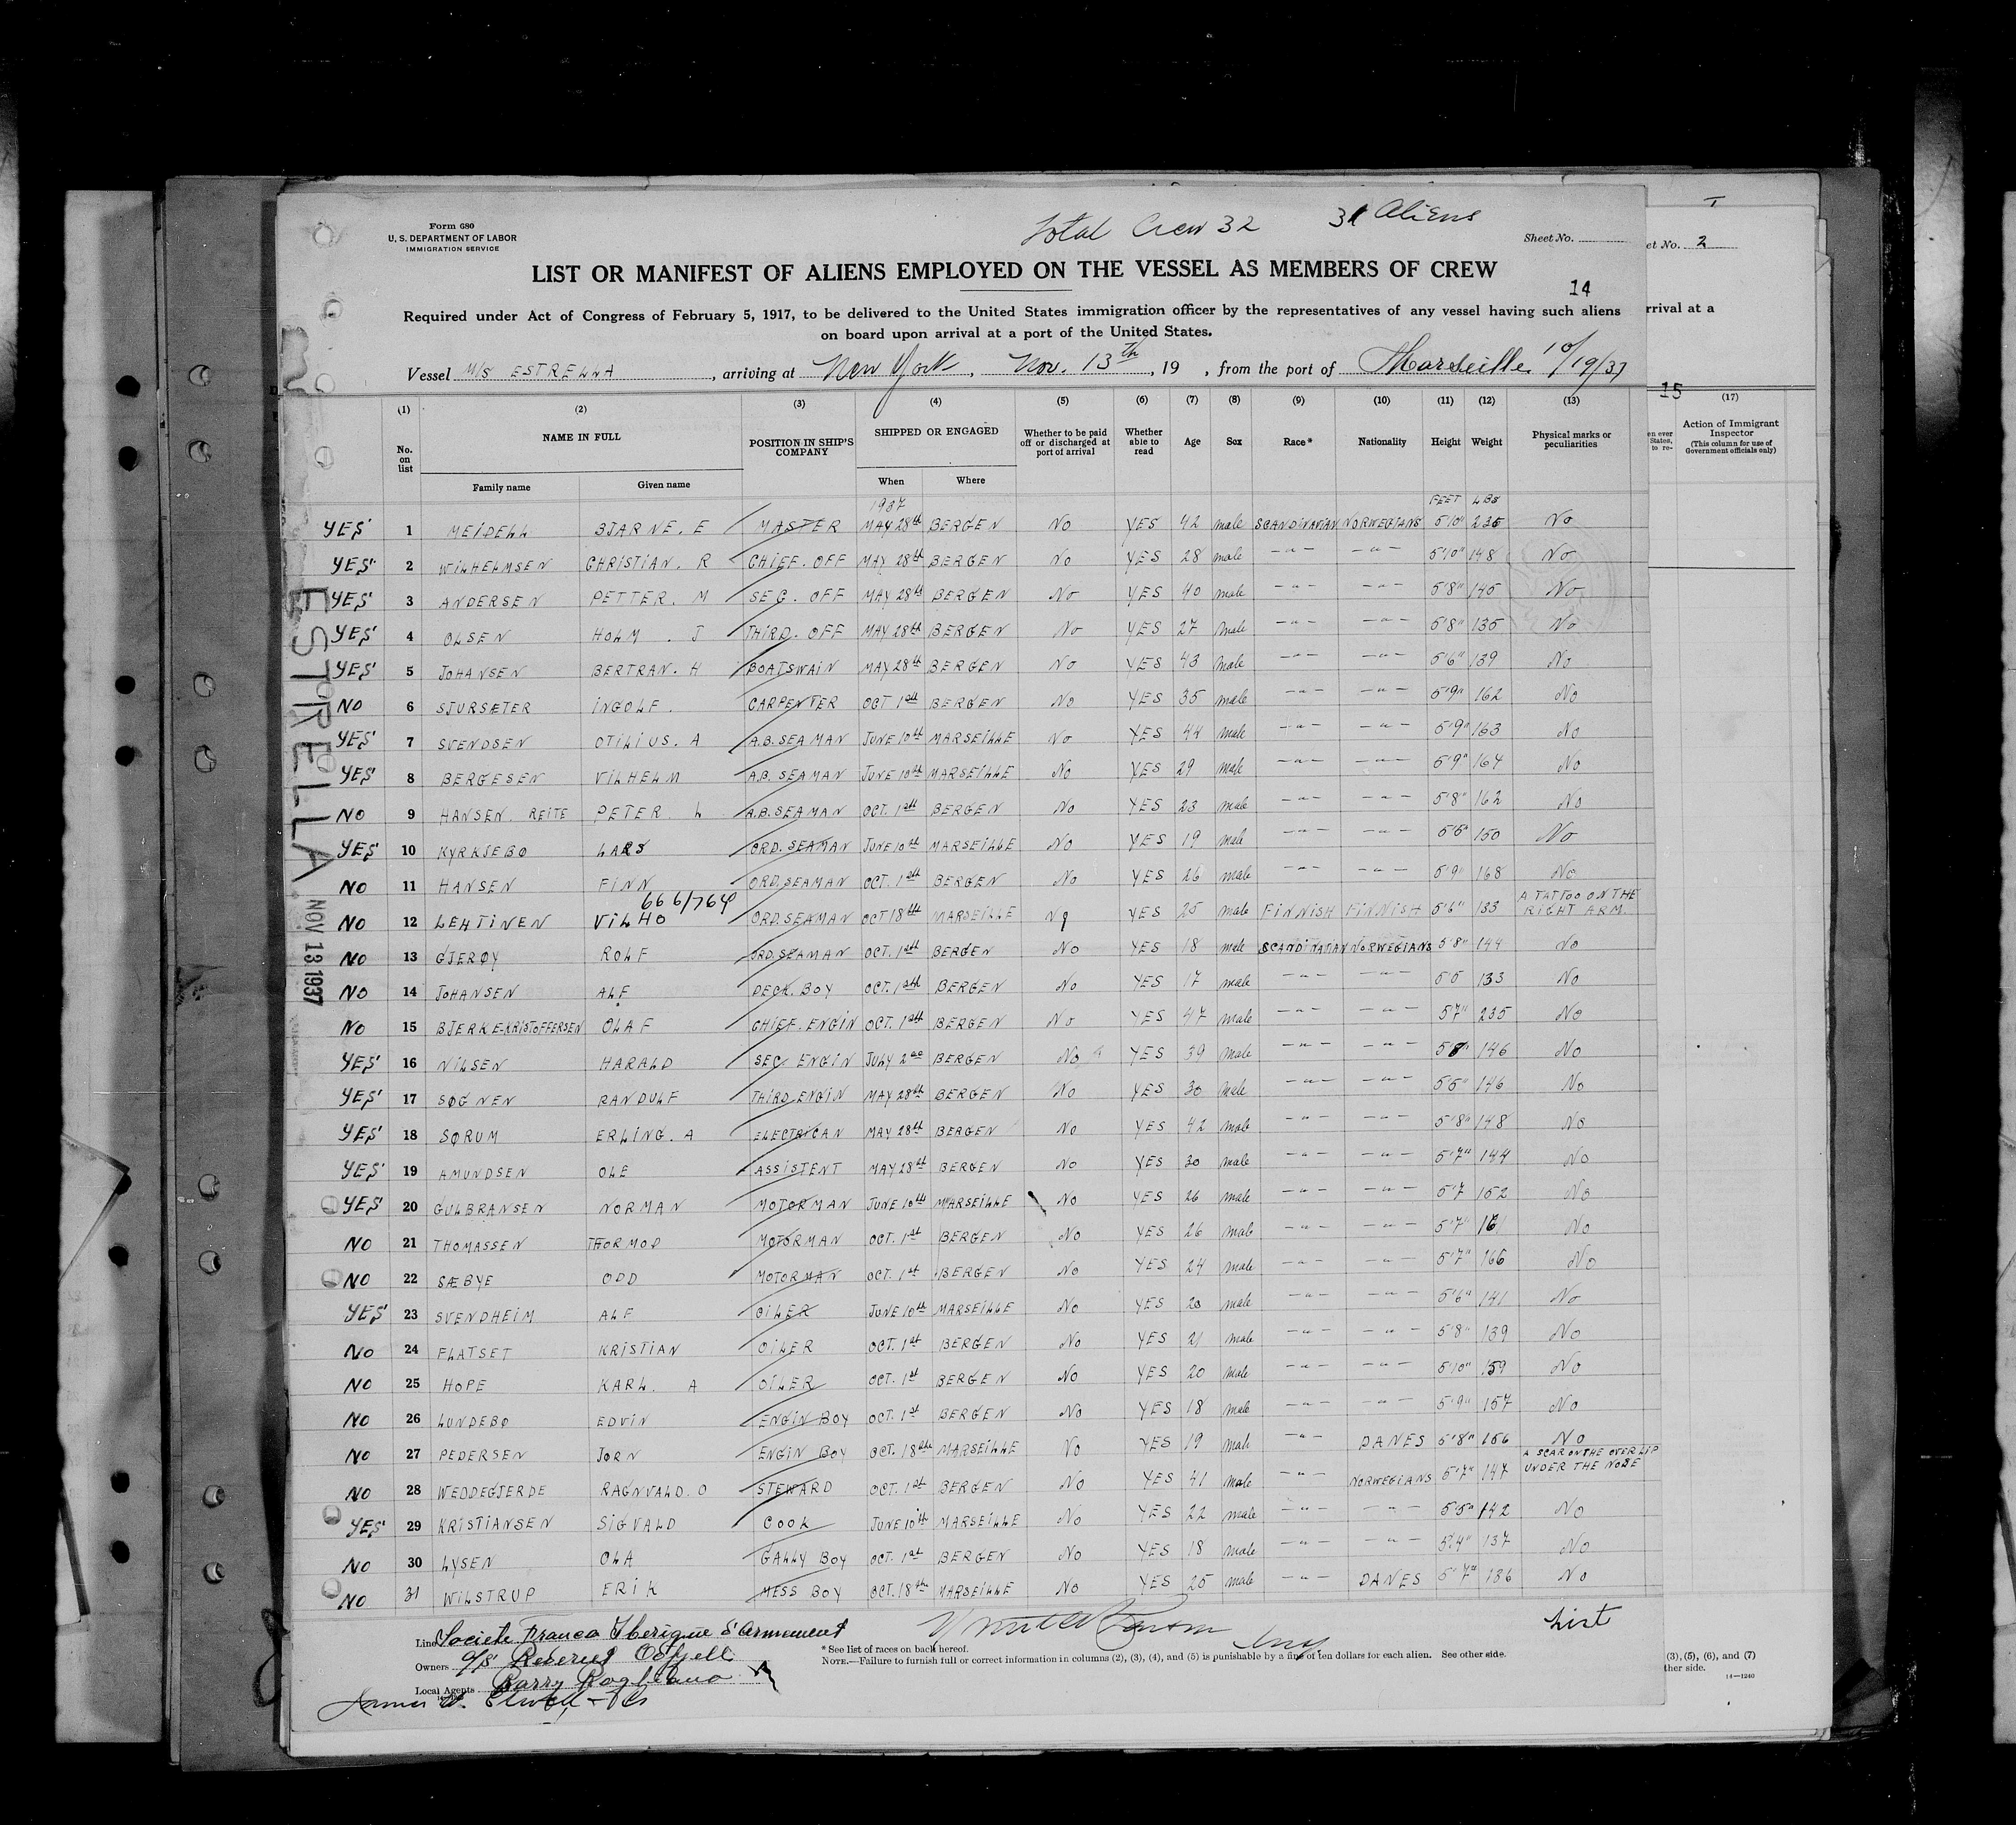 Form 680
U. S. DEPARTMENT OF LABOR
IMMIGRATION SERVICE
Total Crew 32 31 Aliens
Sheet No.
et No. 2
LIST OR MANIFEST OF ALIENS EMPLOYED ON THE VESSEL AS MEMBERS OF CREW
14
Required under Act of Congress of February 5, 1917, to be delivered to the United States immigration officer by the representatives of any vessel having such aliens
on board upon arrival at a port of the United States.
rrival at a
Vessel M/S ESTRELLA, arriving at New York, Nov. 13th, 19 , from the port of Marseille 10/19/37
15
(1) (2) (3) (4) (5) (6) (7) (8) (9) (10) (11) (12) (13) (17)
No. on list NAME IN FULL Family name Given name POSITION IN SHIP'S COMPANY SHIPPED OR ENGAGED When Where Whether to be paid off or discharged at port of arrival Whether able to read Age Sex Race* Nationality Height Weight Physical marks or peculiarities
en ever States, to re-
Action of Immigrant Inspector (This column for use of Government officials only)
1937 FEET LBS
YES 1 MEIDELL BJARNE. E MASTER MAY 28th BERGEN No YES 42 male SCANDINAVIAN NORWEGIANS 5'10" 235 No
YES 2 WILHELMSEN CHRISTIAN. R CHIEF. OFF MAY 28th BERGEN No YES 28 male -"- -"- 5'10" 148 No
YES 3 ANDERSEN PETTER. M SEC. OFF MAY 28th BERGEN No YES 40 male -"- -"- 5'8" 145 No
YES 4 OLSEN HOLM . J THIRD. OFF MAY 28th BERGEN No YES 27 male -"- -"- 5'8" 135 No
YES 5 JOHANSEN BERTRAN. H BOATSWAIN MAY 28th BERGEN No YES 43 male -"- -"- 5'6" 139 No
NO 6 SJURSÆTER INGOLF. CARPENTER OCT 1st BERGEN No YES 35 male -"- -"- 5'9" 162 No
YES 7 SVENDSEN OTILIUS. A A.B. SEAMAN JUNE 10th MARSEILLE No YES 44 male -"- -"- 5'9" 163 No
YES 8 BERGESEN VILHELM A.B. SEAMAN JUNE 10th MARSEILLE No YES 29 male -"- -"- 5'9" 164 No
NO 9 HANSEN. REITE PETER. L A.B. SEAMAN OCT. 1st BERGEN No YES 23 male -"- -"- 5'8" 162 No
YES 10 KYRKJEBØ LARS ORD. SEAMAN JUNE 10th MARSEILLE No YES 19 male -"- -"- 5'6" 150 No
NO 11 HANSEN FINN ORD. SEAMAN OCT. 1st BERGEN No YES 26 male -"- -"- 5'9" 168 No
666/764
NO 12 LEHTINEN VILHO ORD. SEAMAN OCT 18th MARSEILLE No YES 25 male FINNISH FINNISH 5'6" 133 A TATTOO ON THE RIGHT ARM.
NO 13 GJERØY ROLF ORD. SEAMAN OCT. 1st BERGEN No YES 18 male SCANDINAVIAN NORWEGIANS 5'8" 144 No
NO 14 JOHANSEN ALF DECK. BOY OCT. 1st BERGEN No YES 17 male -"- -"- 5'5 133 No
NO 15 BJERKE KRISTOFFERSEN OLAF CHIEF. ENGIN OCT. 1st BERGEN No YES 47 male -"- -"- 5'7" 235 No
YES 16 NILSEN HARALD SEC. ENGIN JULY 2nd BERGEN No YES 39 male -"- -"- 5'8" 146 No
YES 17 SØGNEN RANDULF THIRD ENGIN MAY 28th BERGEN No YES 30 male -"- -"- 146 No
YES 18 SØRUM ERLING. A ELECTRICAN MAY 28th BERGEN No YES 42 male -"- -"- 5'8" 148 No
YES 19 AMUNDSEN OLE ASSISTENT MAY 28th BERGEN No YES 30 male -"- -"- 5'7" 144 No
YES 20 GULBRANSEN NORMAN MOTORMAN JUNE 10th MARSEILLE No YES 26 male -"- -"- 5'7 152 No
NO 21 THOMASSEN THORMOD MOTORMAN OCT. 1st BERGEN No YES 26 male -"- -"- 5'7" 161 No
NO 22 SÆBYE ODD MOTORMAN OCT. 1st BERGEN No YES 24 male -"- -"- 5'7" 166 No
YES 23 SVENDHEIM ALF OILER JUNE 10th MARSEILLE No YES 20 male -"- -"- 5'6" 141 No
NO 24 FLATSET KRISTIAN OILER OCT. 1st BERGEN No YES 21 male -"- -"- 5'8" 139 No
NO 25 HOPE KARL. A OILER OCT. 1st BERGEN No YES 20 male -"- -"- 5'10" 159 No
NO 26 LUNDEBØ EDVIN ENGIN BOY OCT. 1st BERGEN No YES 18 male -"- -"- 5'9" 157 No
NO 27 PEDERSEN JØRN ENGIN BOY OCT. 18th MARSEILLE No YES 19 male -"- DANES 5'8" 156 No
NO 28 WEDDEGJERDE RAGNVALD. O STEWARD OCT. 1st BERGEN No YES 41 male -"- NORWEGIANS 5'7" 147 A SCAR ON THE OVERLIP UNDER THE NOSE
YES 29 KRISTIANSEN SIGVALD COOK JUNE 10th MARSEILLE No YES 22 male -"- -"- 5'5" 142 No
NO 30 LYSEN OLA GALLY BOY OCT. 1st BERGEN No YES 18 male -"- -"- 5'4" 137 No
NO 31 WILSTRUP ERIK MESS BOY OCT. 18th MARSEILLE No YES 25 male -"- DANES 5'7" 136 No
ESTRELLA
NOV 13 1937
List
Line Societe Franco Iberique d'Armement
Owners
Local Agents Barry Rogliano
James W. Elwell
* See list of races on back hereof.
NOTE.—Failure to furnish full or correct information in columns (2), (3), (4), and (5) is punishable by a fine of ten dollars for each alien. See other side.
(3), (5), (6), and (7)
ther side.
14—1240